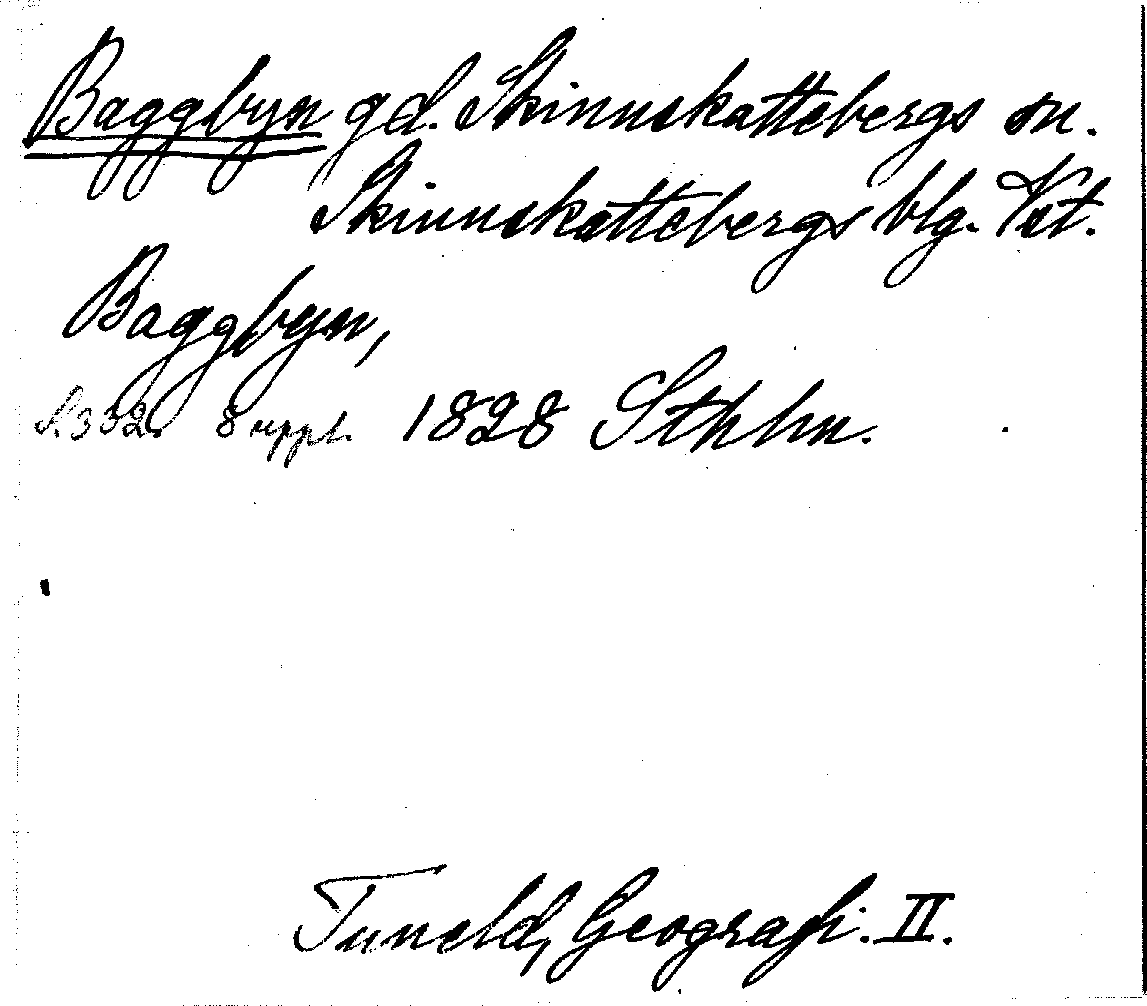 Baggbyn gd. Skinnskattebergs sn.
Skinnskattebergs blg. Vst.
Baggbyn,
S. 332. 8 uppl. 1828 Sthlm.
Tuneld, Geografi. II.